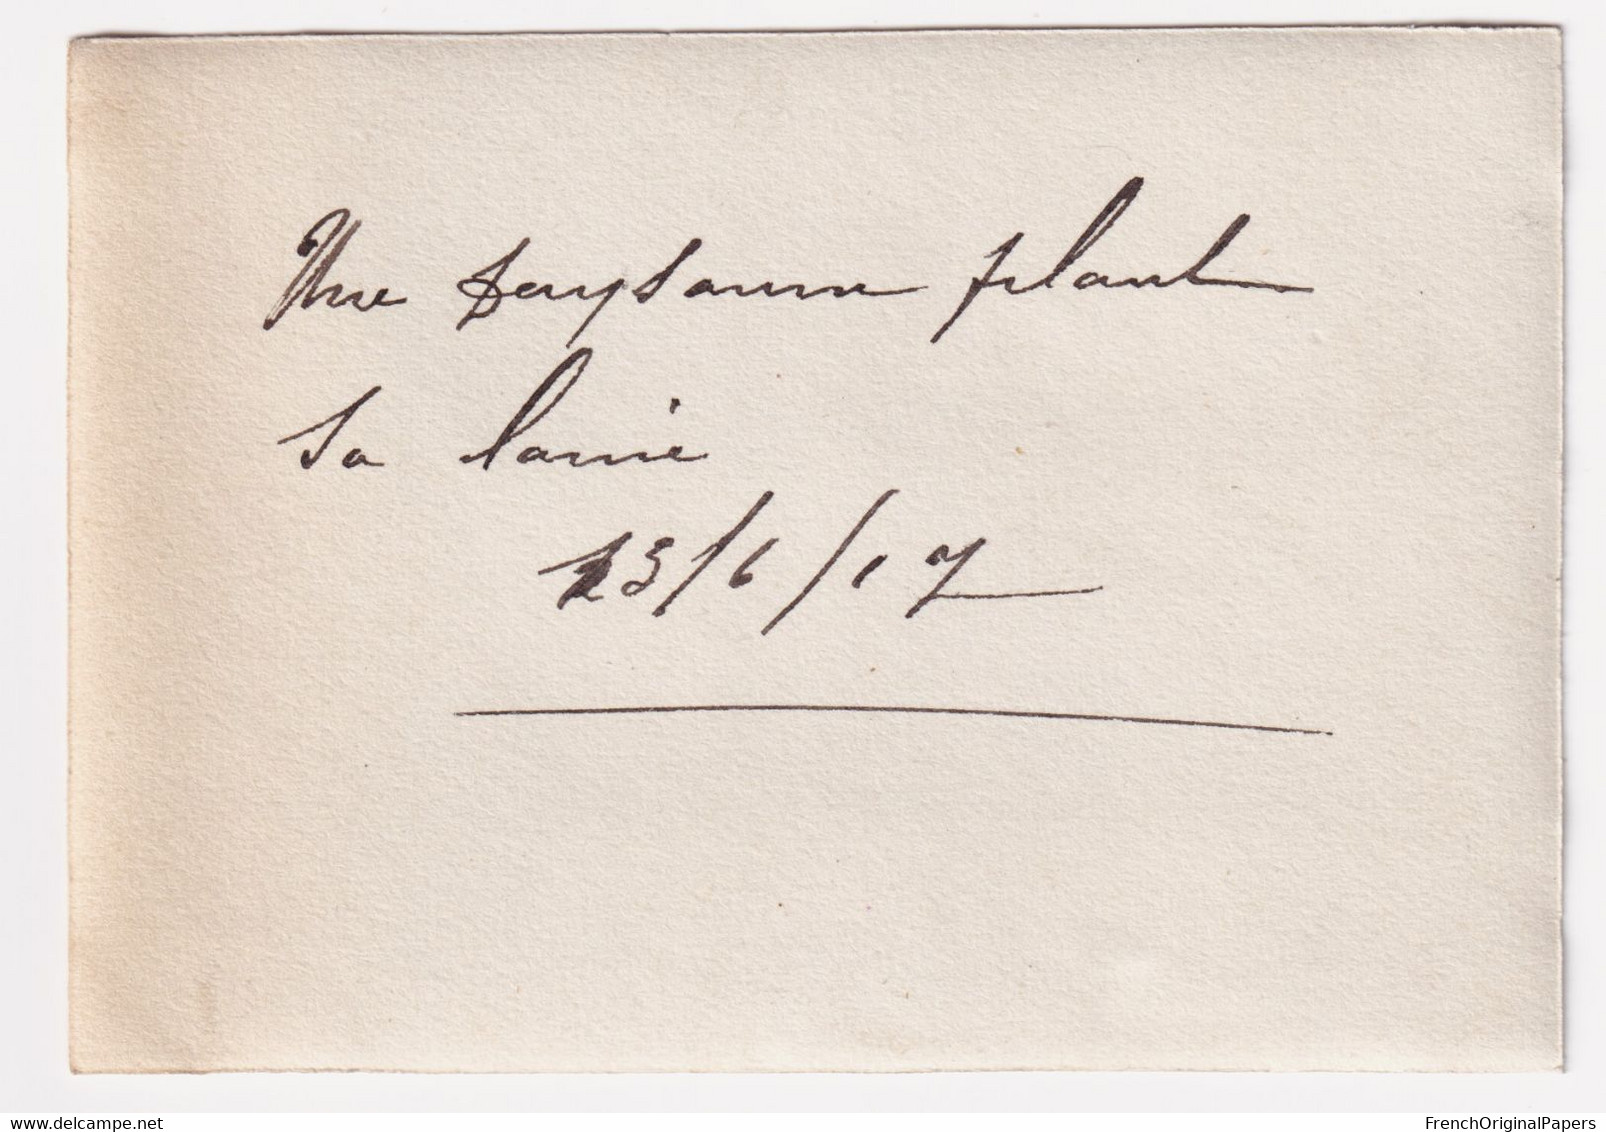 Une paysanne filant
sa laine
23/6/17
delcampe.net
FrenchOriginalPapers